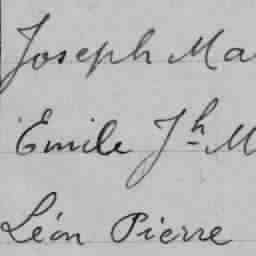 Joseph Ma
Emile Jh M
Léon Pierre